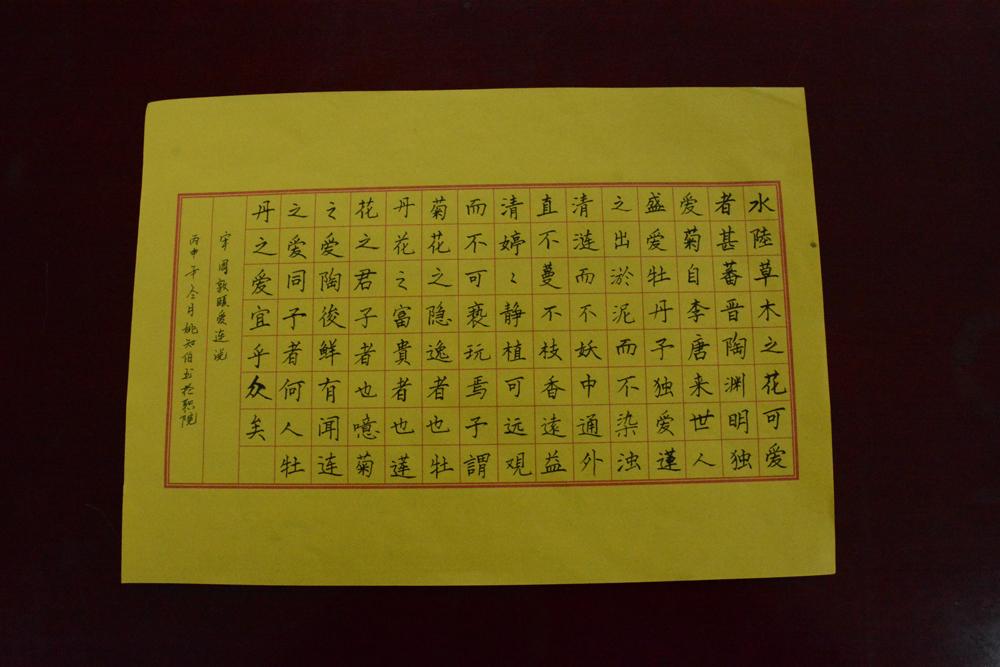 水陸草木之花可爱
者甚蕃晋陶渊明独
爱菊自李唐来世人
盛爱牡丹予独爱蓮
之出淤泥而不染浊
清涟而不妖中通外
直不蔓不枝香遠益
清婷〻静植可远观
而不可亵玩焉予謂
菊花之隐逸者也牡
丹花之富貴者也莲
花之君子者也噫菊
之爱陶後鲜有闻连
之爱同予者何人牡
丹之爱宜乎众矣
宋周敦颐爱连说
丙申年冬月姚知伯书於